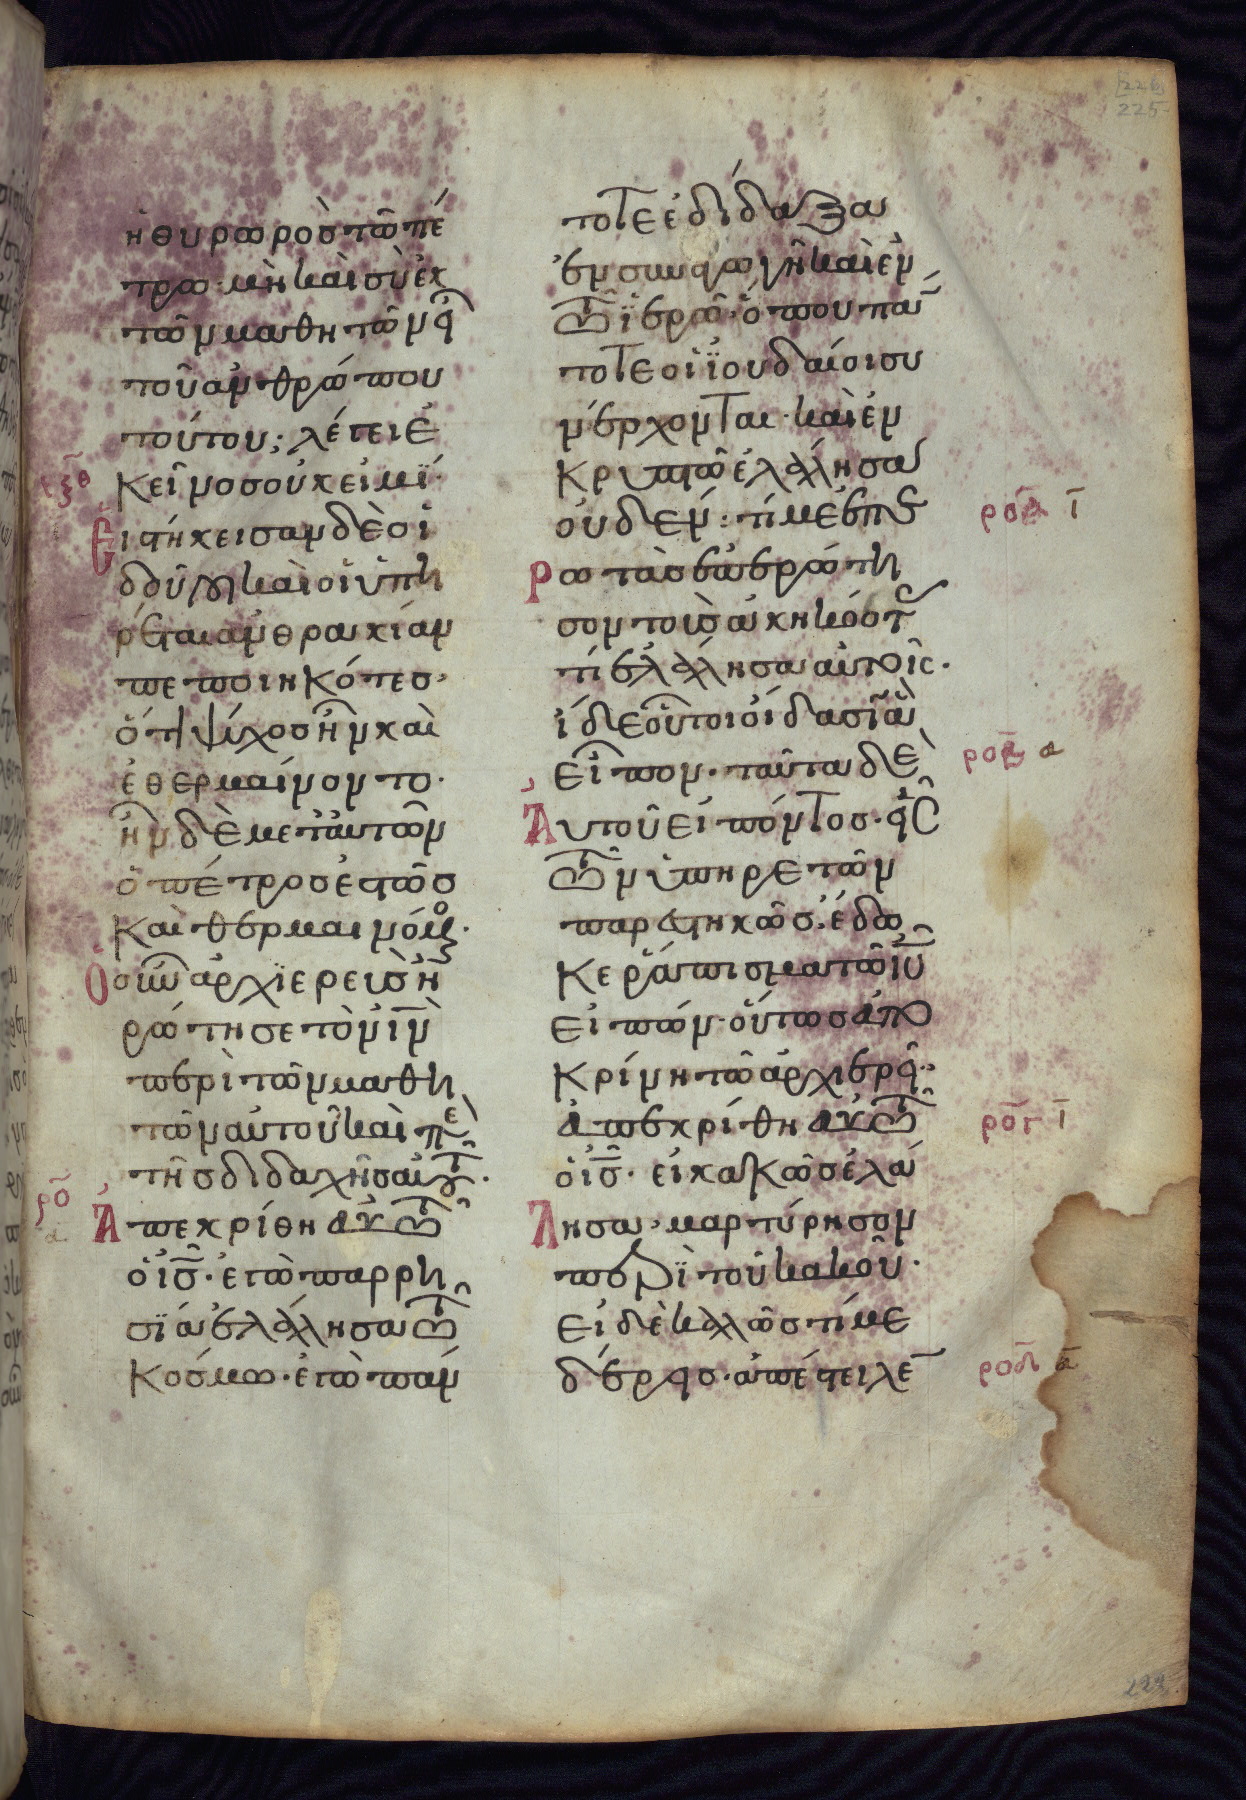 [226]
225
ἡ θυρωρὸς τῶ πέ
τρω· μὴ καὶ σὺ ἐκ
τῶν μαθητῶν εἶ
τοῦ ἀνθρώπου
τούτου; λέγει ἐ
κεῖνος οὐκ εἰμί·
Εἱστήκεισαν δὲ οἱ
δοῦλοι καὶ οἱ ὑπη
ρέται ἀνθρακίαν
πεποιηκότες·
ὅτι ψύχος ἦν καὶ
ἐθερμαίνοντο·
ἦν δὲ μετ' αὐτῶν
ὁ πέτρος ἑστῶς
καὶ θερμαινόμενος·
Ὁ οὖν ἀρχϊερεὺς ἠ
ρώτησε τὸν ιν
περὶ τῶν μαθη
τῶν αὐτοῦ καὶ περὶ
τῆς διδαχῆς αὐτοῦ·
ρο
Ἀπεκρίθη αὐτῶ
ὁ ις· ἐγὼ παρρη
σϊα ἐλάλησα τῶ
κόσμω· ἐγὼ πάν
τοτε ἐδίδαξα
ἐν συναγωγῆ καὶ ἐν
τῶ ϊερῶ· ὅπου πάν
τοτε οἱ ϊουδαίοι συ
νέρχονται· καὶ ἐν
κρυπτῶ ἐλάλησα
οὐδέν: τί με ἐπε
ροα ι
ρωτὰς ἐπερώτη
σον τοὺς ἀκηκόοτας
τί ἐλάλησα αὐτοῖς·
ἴδε οὗτοι οἴδασιν ἃ
εἶπον· ταῦτα δὲ
ροβ α
Αὐτοῦ εἰπόντος· εἷς
τῶν ὑπηρετῶν
παρεστηκῶς· ἔδω
κε ράπισμα τῶ ιυ
εἰπών· οὕτως ἀπο
κρίνη τῶ ἀρχιερεῖ·
ἀπεκρίθη αὐτῶ
ρογ ι
ὁ ις· εἰ κακῶς ἐλά
λησα· μαρτύρησον
περϊ τοῦ κακοῦ·
εἰ δὲ καλῶς τί με
δέρεις· ἀπέστειλεν
ροδ α